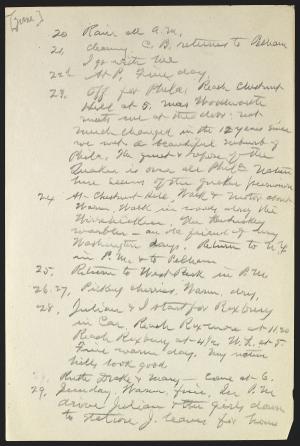 [June]
20 Rain all A.M.
21, clearing. C. B. returns to Pelham
I go with
22d At P. Fine day.
23, Off for Phila; Reach Chestnut
Hill at 5. Mrs Woodworth
meets me at the door; not
much changed in the 12 years since
we met. A beautiful suburb of
Phila. The quiet & repose of the
Quaker is over all Phila. Nature
here seems of the Quaker
24 At Chestnut Hill, Walk & motor about
Warm. Walk in woods along the
Wissahickon. The Kentucky
warbler — an old friend of my
Washington days. Return to N.Y.
in P.M. & to Pelham
25, Return to West Park in P.M.
26-27, Picking cherries, Warm, dry,
28, Julian & I start for Roxbury
in Car, Reach at 11.20
Reach Roxbury at 4½ W. L. at 5.
Fine warm day. My native
hills look good
Ruth & Mary — came at 6.
29, Sunday, Warm, fine, In P.M.
drive Julian & the girls down
to station J. leaves for home